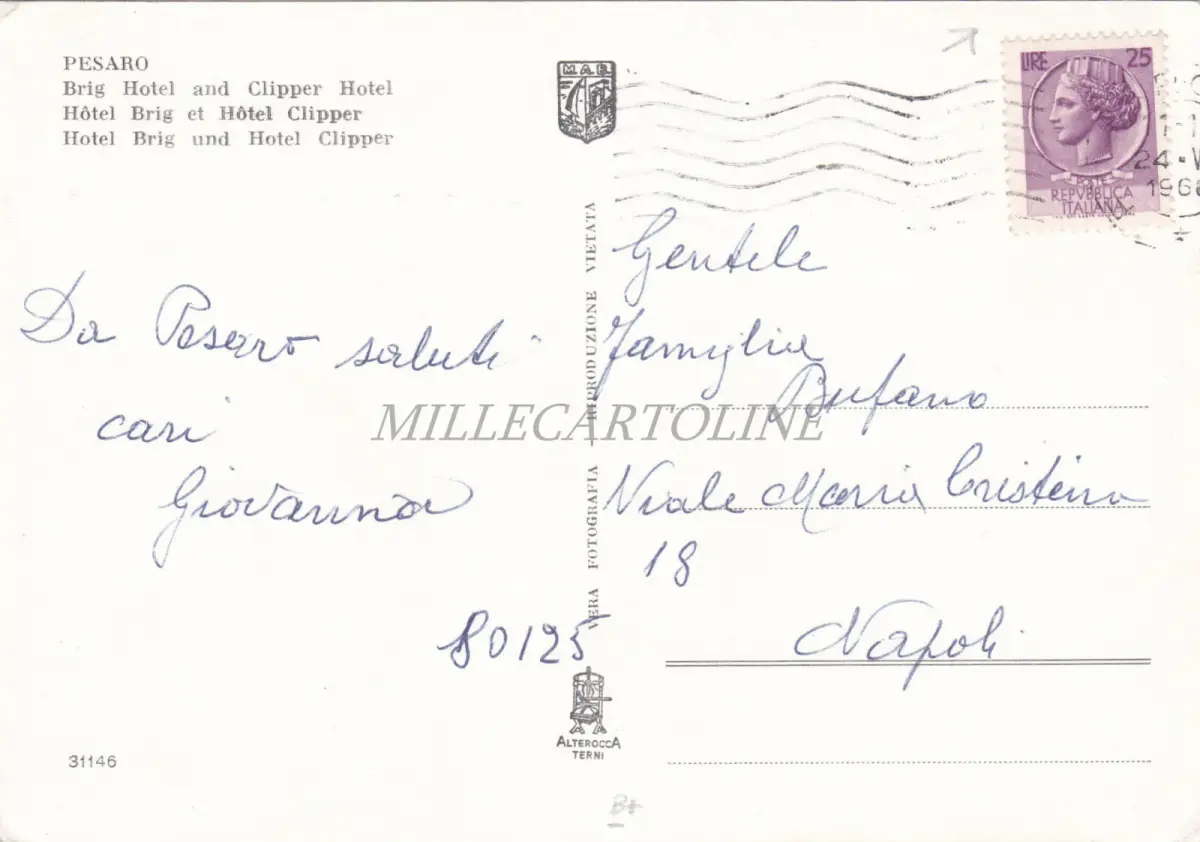 PESARO
Brig Hotel and Clipper Hotel
Hôtel Brig et Hôtel Clipper
Hotel Brig und Hotel Clipper
M.A.B.
LIRE 25
POSTE
REPVBBLICA
ITALIANA
24 · V
196
Da Pesaro saluti
cari
Giovanna
VERA FOTOGRAFIA - RIPRODUZIONE VIETATA
Gentele
Famiglia
Bufano
Viale Maria Cristina
18
80125
Napoli
ALTEROCCA
TERNI
31146
MILLECARTOLINE